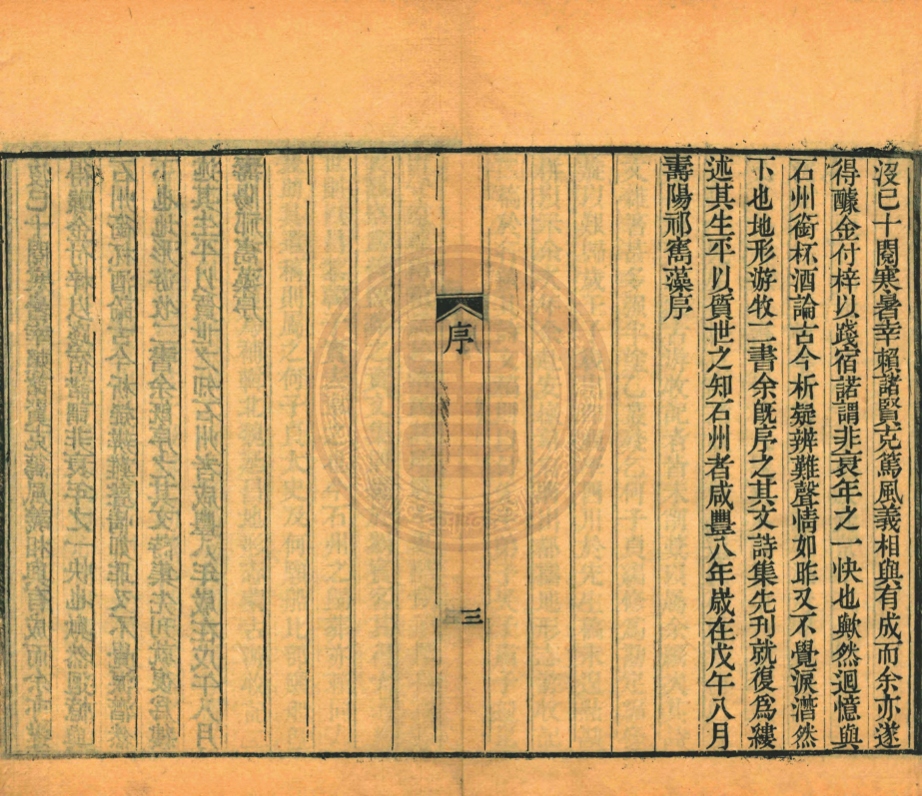 沒已十閱寒暑幸賴諸賢克篤風義相與有成而余亦遂
得醵金付梓以踐宿諾謂非衰年之一快也歟然迴憶與
石州銜杯酒論古今析疑辨難聲情如昨又不覺淚潸然
下也地形游牧二書余旣序之其文詩集先刊就復爲縷
述其生平以質世之知石州者咸豐八年歲在戊午八月
壽陽祁寯藻序
序
三